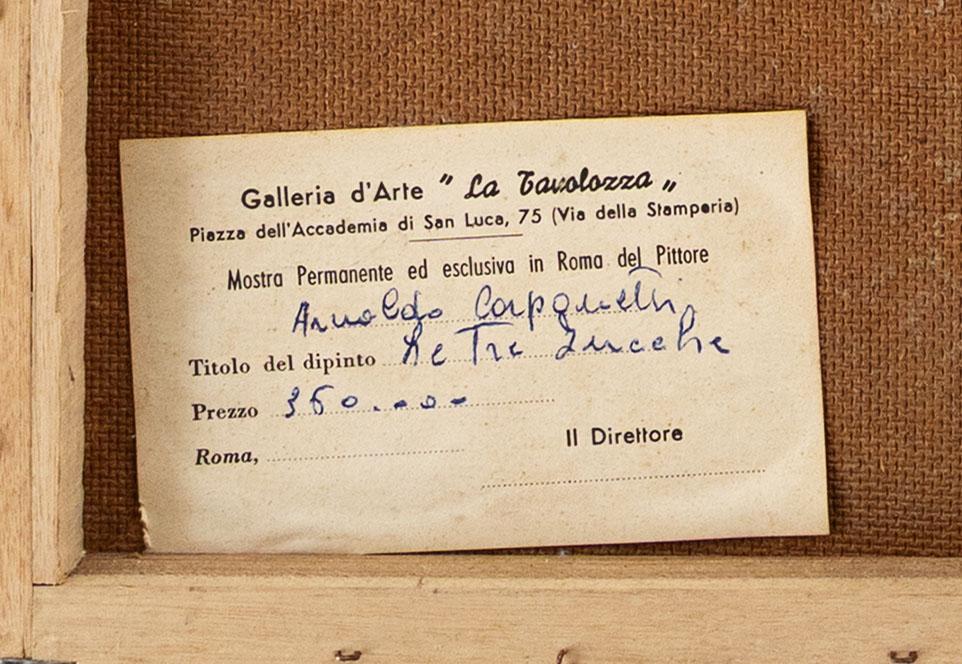 Galleria d'Arte " La Tavolozza "
Piazza dell'Accademia di San Luca, 75 (Via della Stamperia)
Mostra Permanente ed esclusiva in Roma del Pittore
Arnoldo Carpanetti
Titolo del dipinto Le Tre Zucche
Prezzo 350.000
Roma,
Il Direttore